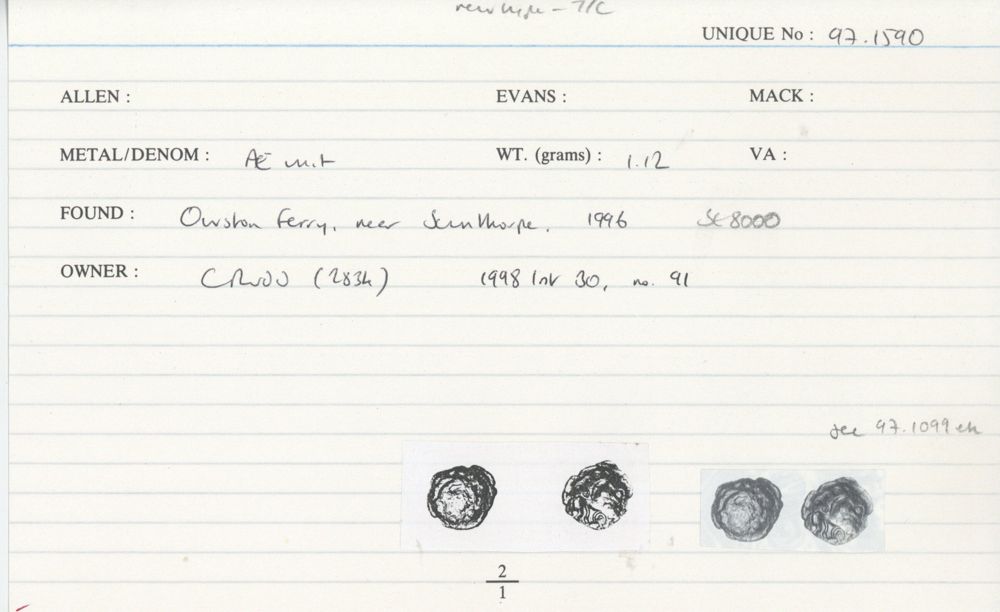 new type - T/C
UNIQUE No : 97.1590
ALLEN : EVANS : MACK :
METAL/DENOM : Æ unit WT. (grams) : 1.12 VA :
FOUND : Owston Ferry, near Scunthorpe. 1996 SE 8000
OWNER : CRWJJ (2834) 1998 Inv 30, no. 91
see 97.1099 etc
2
1